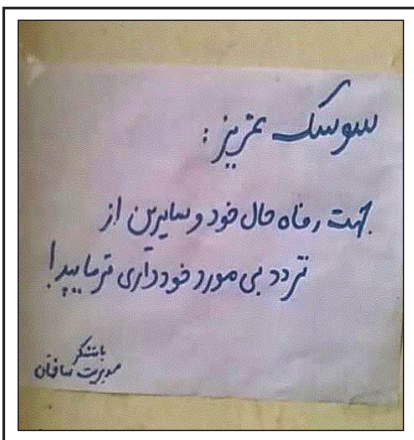 سوسک عزیز :
جهت رفاه حال خود و سایرین از
تردد بی مورد خودداری فرمایید!
باتشکر
مدیریت ساختمان